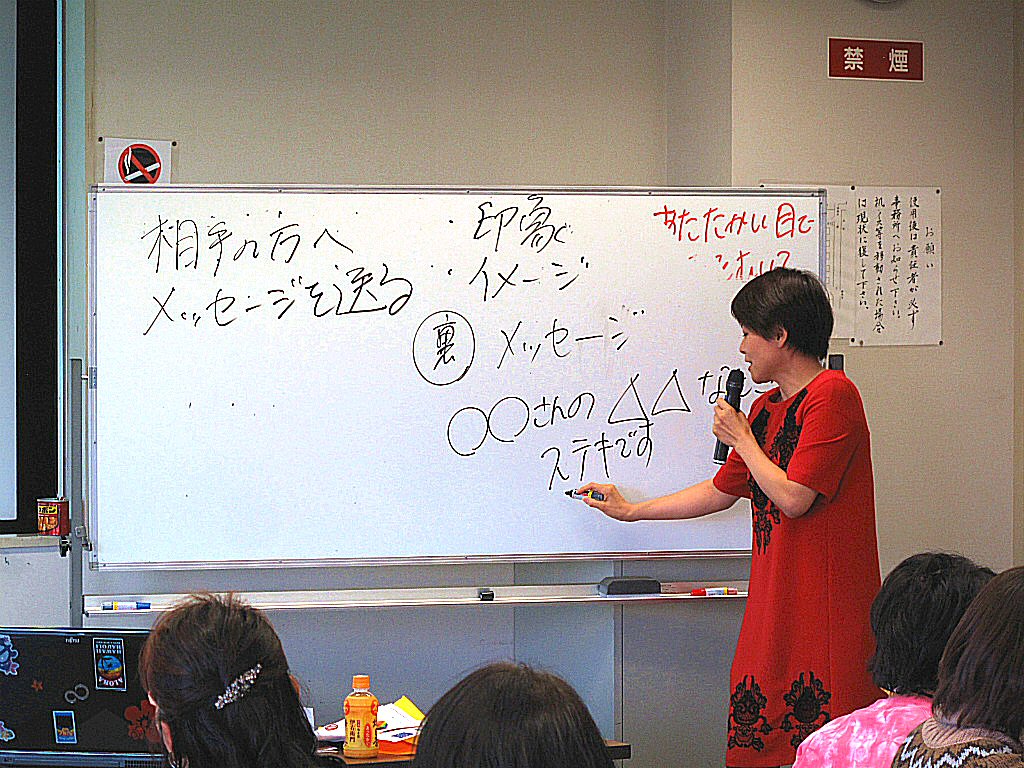 禁煙
相手の方へ
メッセージを送る
・印象
・イメージ
裏 メッセージ
○○さんの △△ な
ステキです
あたたかい目で
お願い
使用後は責任者が必ず
事務所へお知らせ下さい。
机、イス等を移動された場合
は現状に復して下さい。
FUJITSU
HAWAII
ALOHA